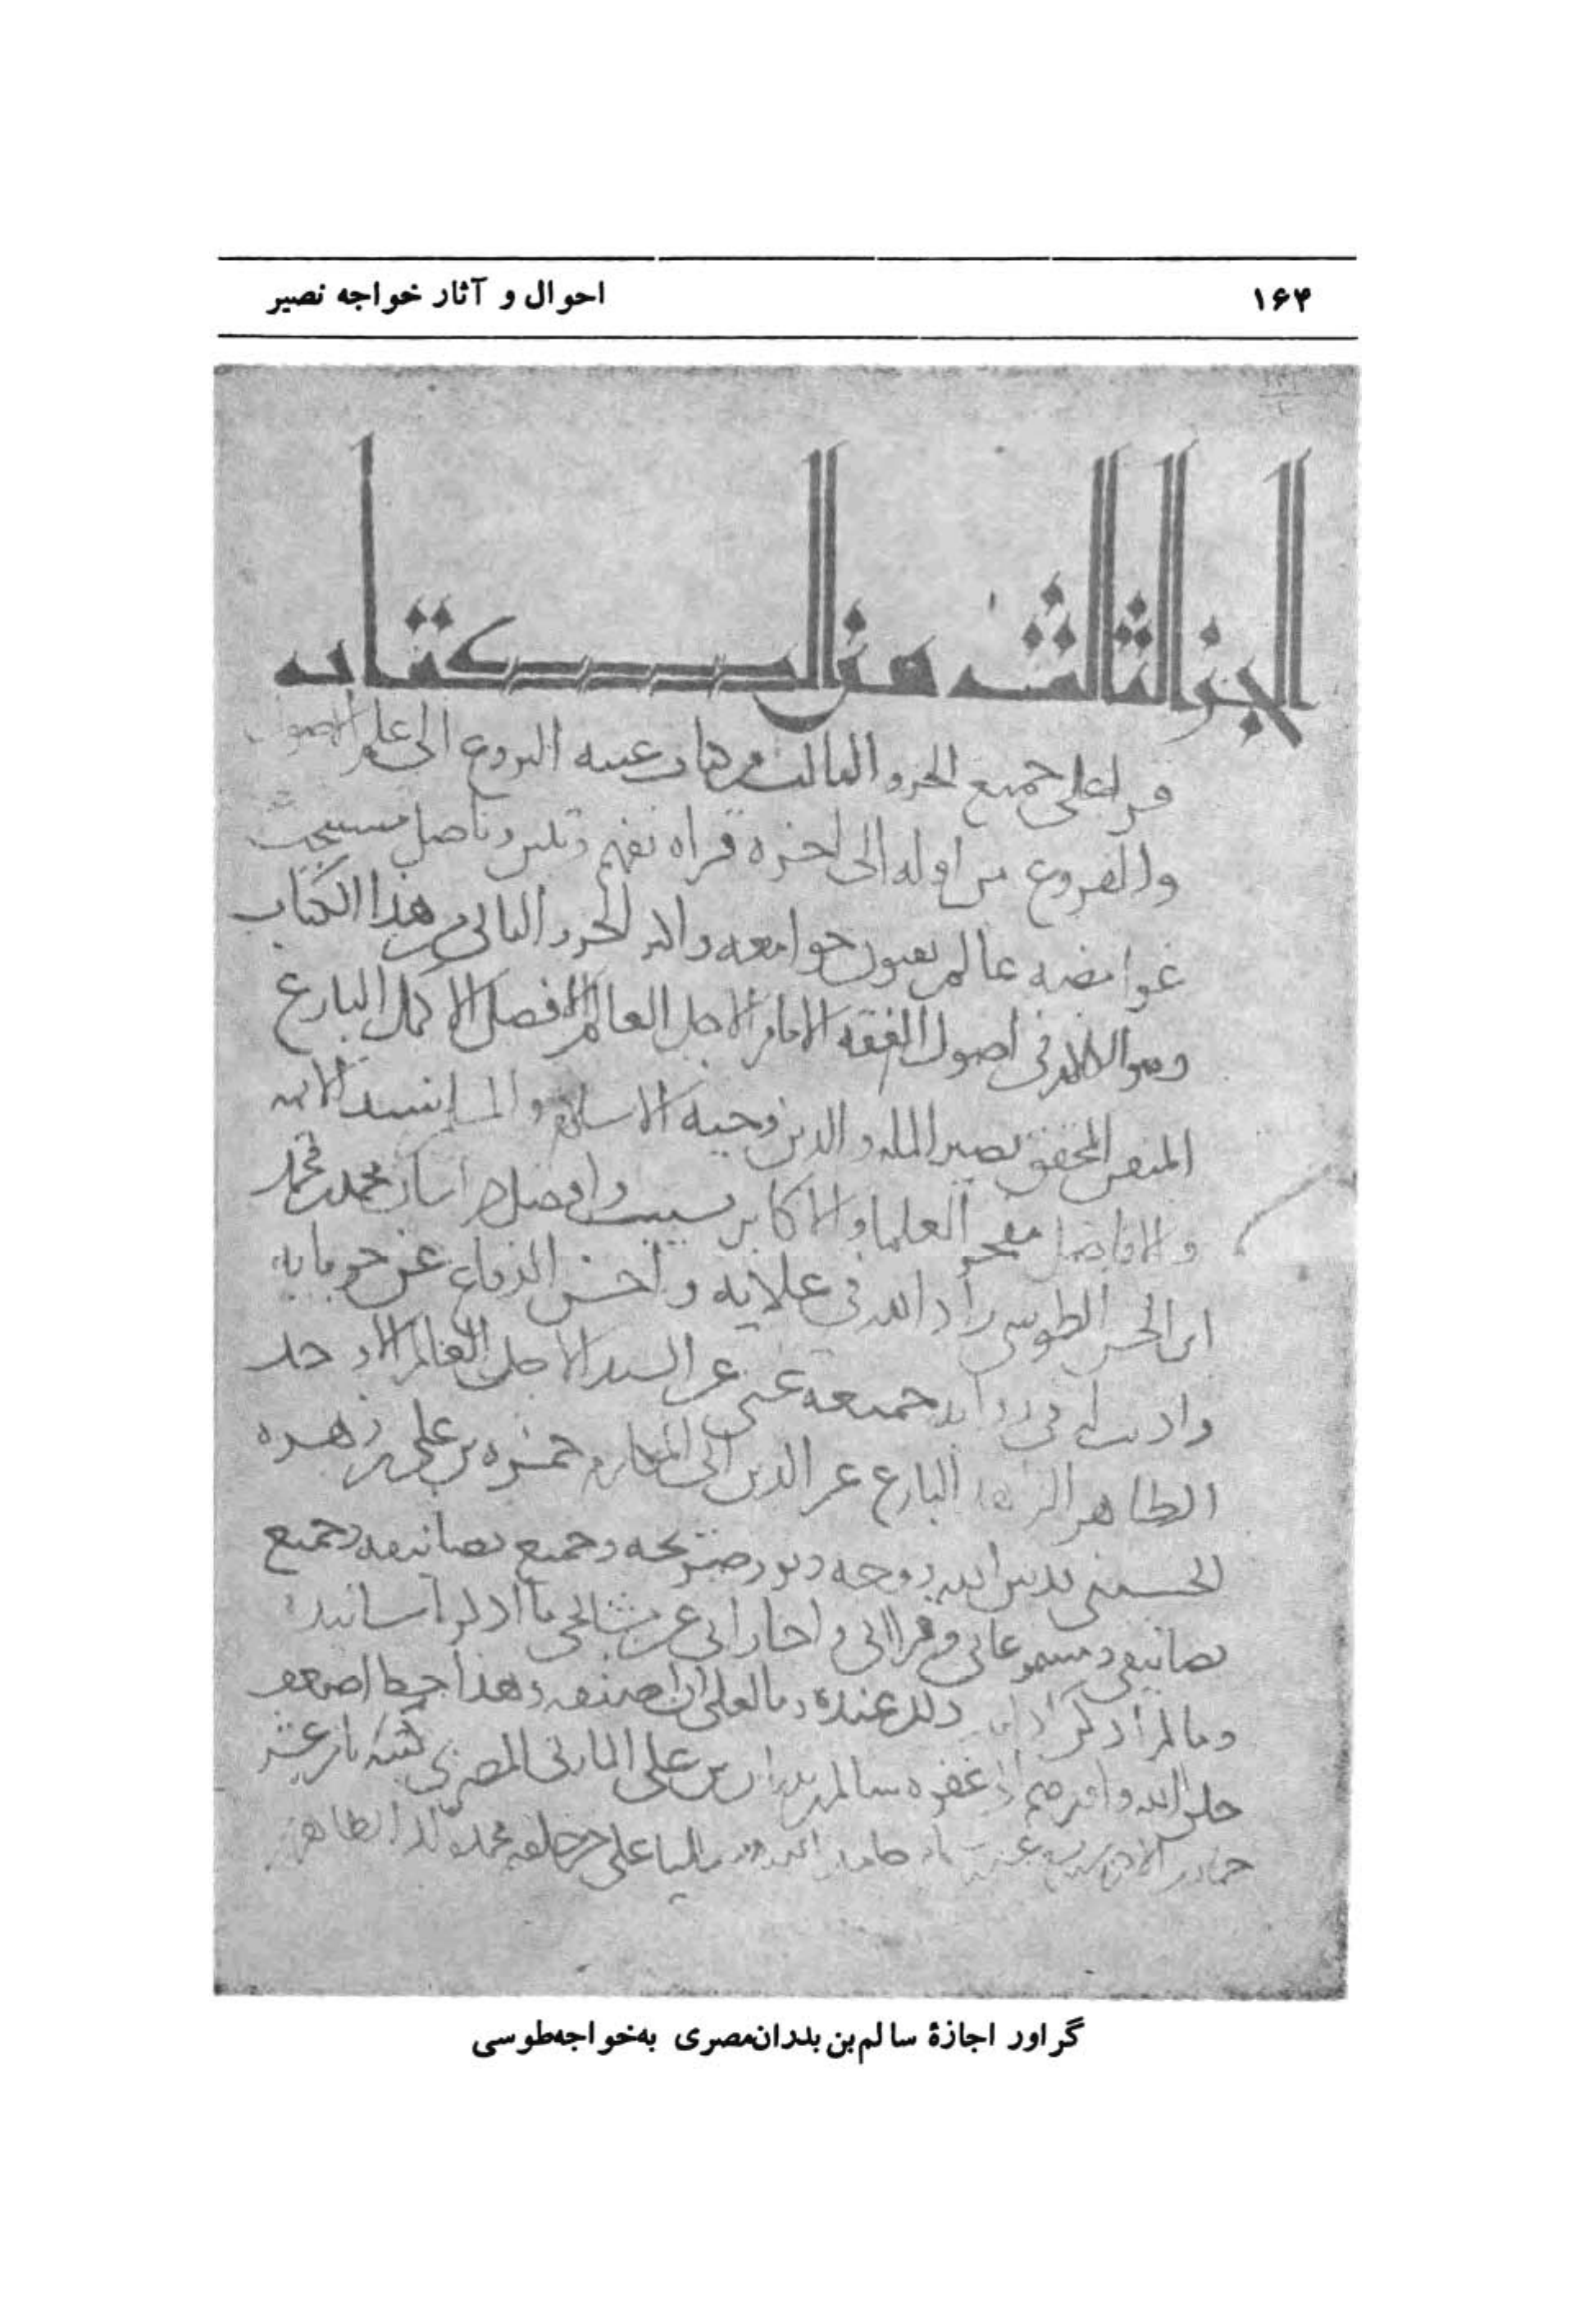 ۱۶۴
احوال و آثار خواجه نصیر
الجزء الثالث من الكتاب
قرا على جميع الجزء الثالث من كتاب غنيه النزوع الى علم الاصول
والفروع من اوله الى اخره قراه تفهم وتبين وتامل مستبحث
غوامضه عالم بفنون جوامعه واكثر الجزء الثانى من هذا الكتاب
وهو الكلام فى اصول الفقه الامام الاجل العالم الافضل الاكمل البارع
المتقن المحقق نصير المله والدين وجيه الاسلام والمسلمين سند الائمه
والافاضل مفخر العلما والاكابر وافضل خراسان محمد بن محمد
ابن الحسن الطوسى زاد الله فى علايه واحسن الدفاع عن حوبايه
واذنت له فى روايه جميعه عنى عن السيد الاجل العالم الاوحد
الطاهر الزاهد البارع عز الدين ابى المكارم حمزه بن على بن زهره
الحسينى قدس الله روحه ونور ضريحه وجميع تصانيفه وجميع
تصانيفى ومسموعاتى وقراتى واجازاتى عن مشايخى ما اذكر اسانيده
وما لم اذكر اذا ثبت ذلك عنده وما لعلى ان اصنفه وهذا خط اضعف
خلق الله وافقرهم الى عفوه سالم بن بدران بن على المازنى المصرى كتبه ثامن عشر
جمادى الاخره سنه تسع عشر حامدا لله مصليا على خير خلقه محمد واله الطاهرين
گراور اجازهٔ سالم‌بن بدران‌مصری به‌خواجه‌طوسی